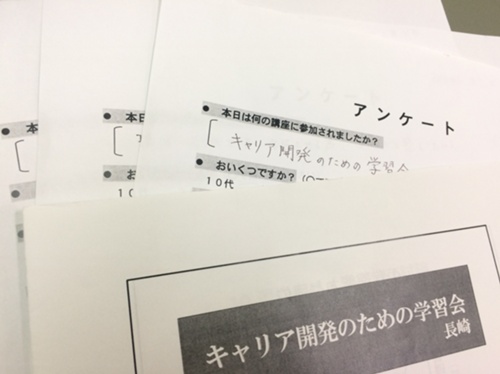 アンケート
● 本日は何の講座に参加されましたか?
[ キャリア開発のための学習会
● おいくつですか?
10代
● 本日
[
● お
10
● 本
[
キャリア開発のための学習会
長崎